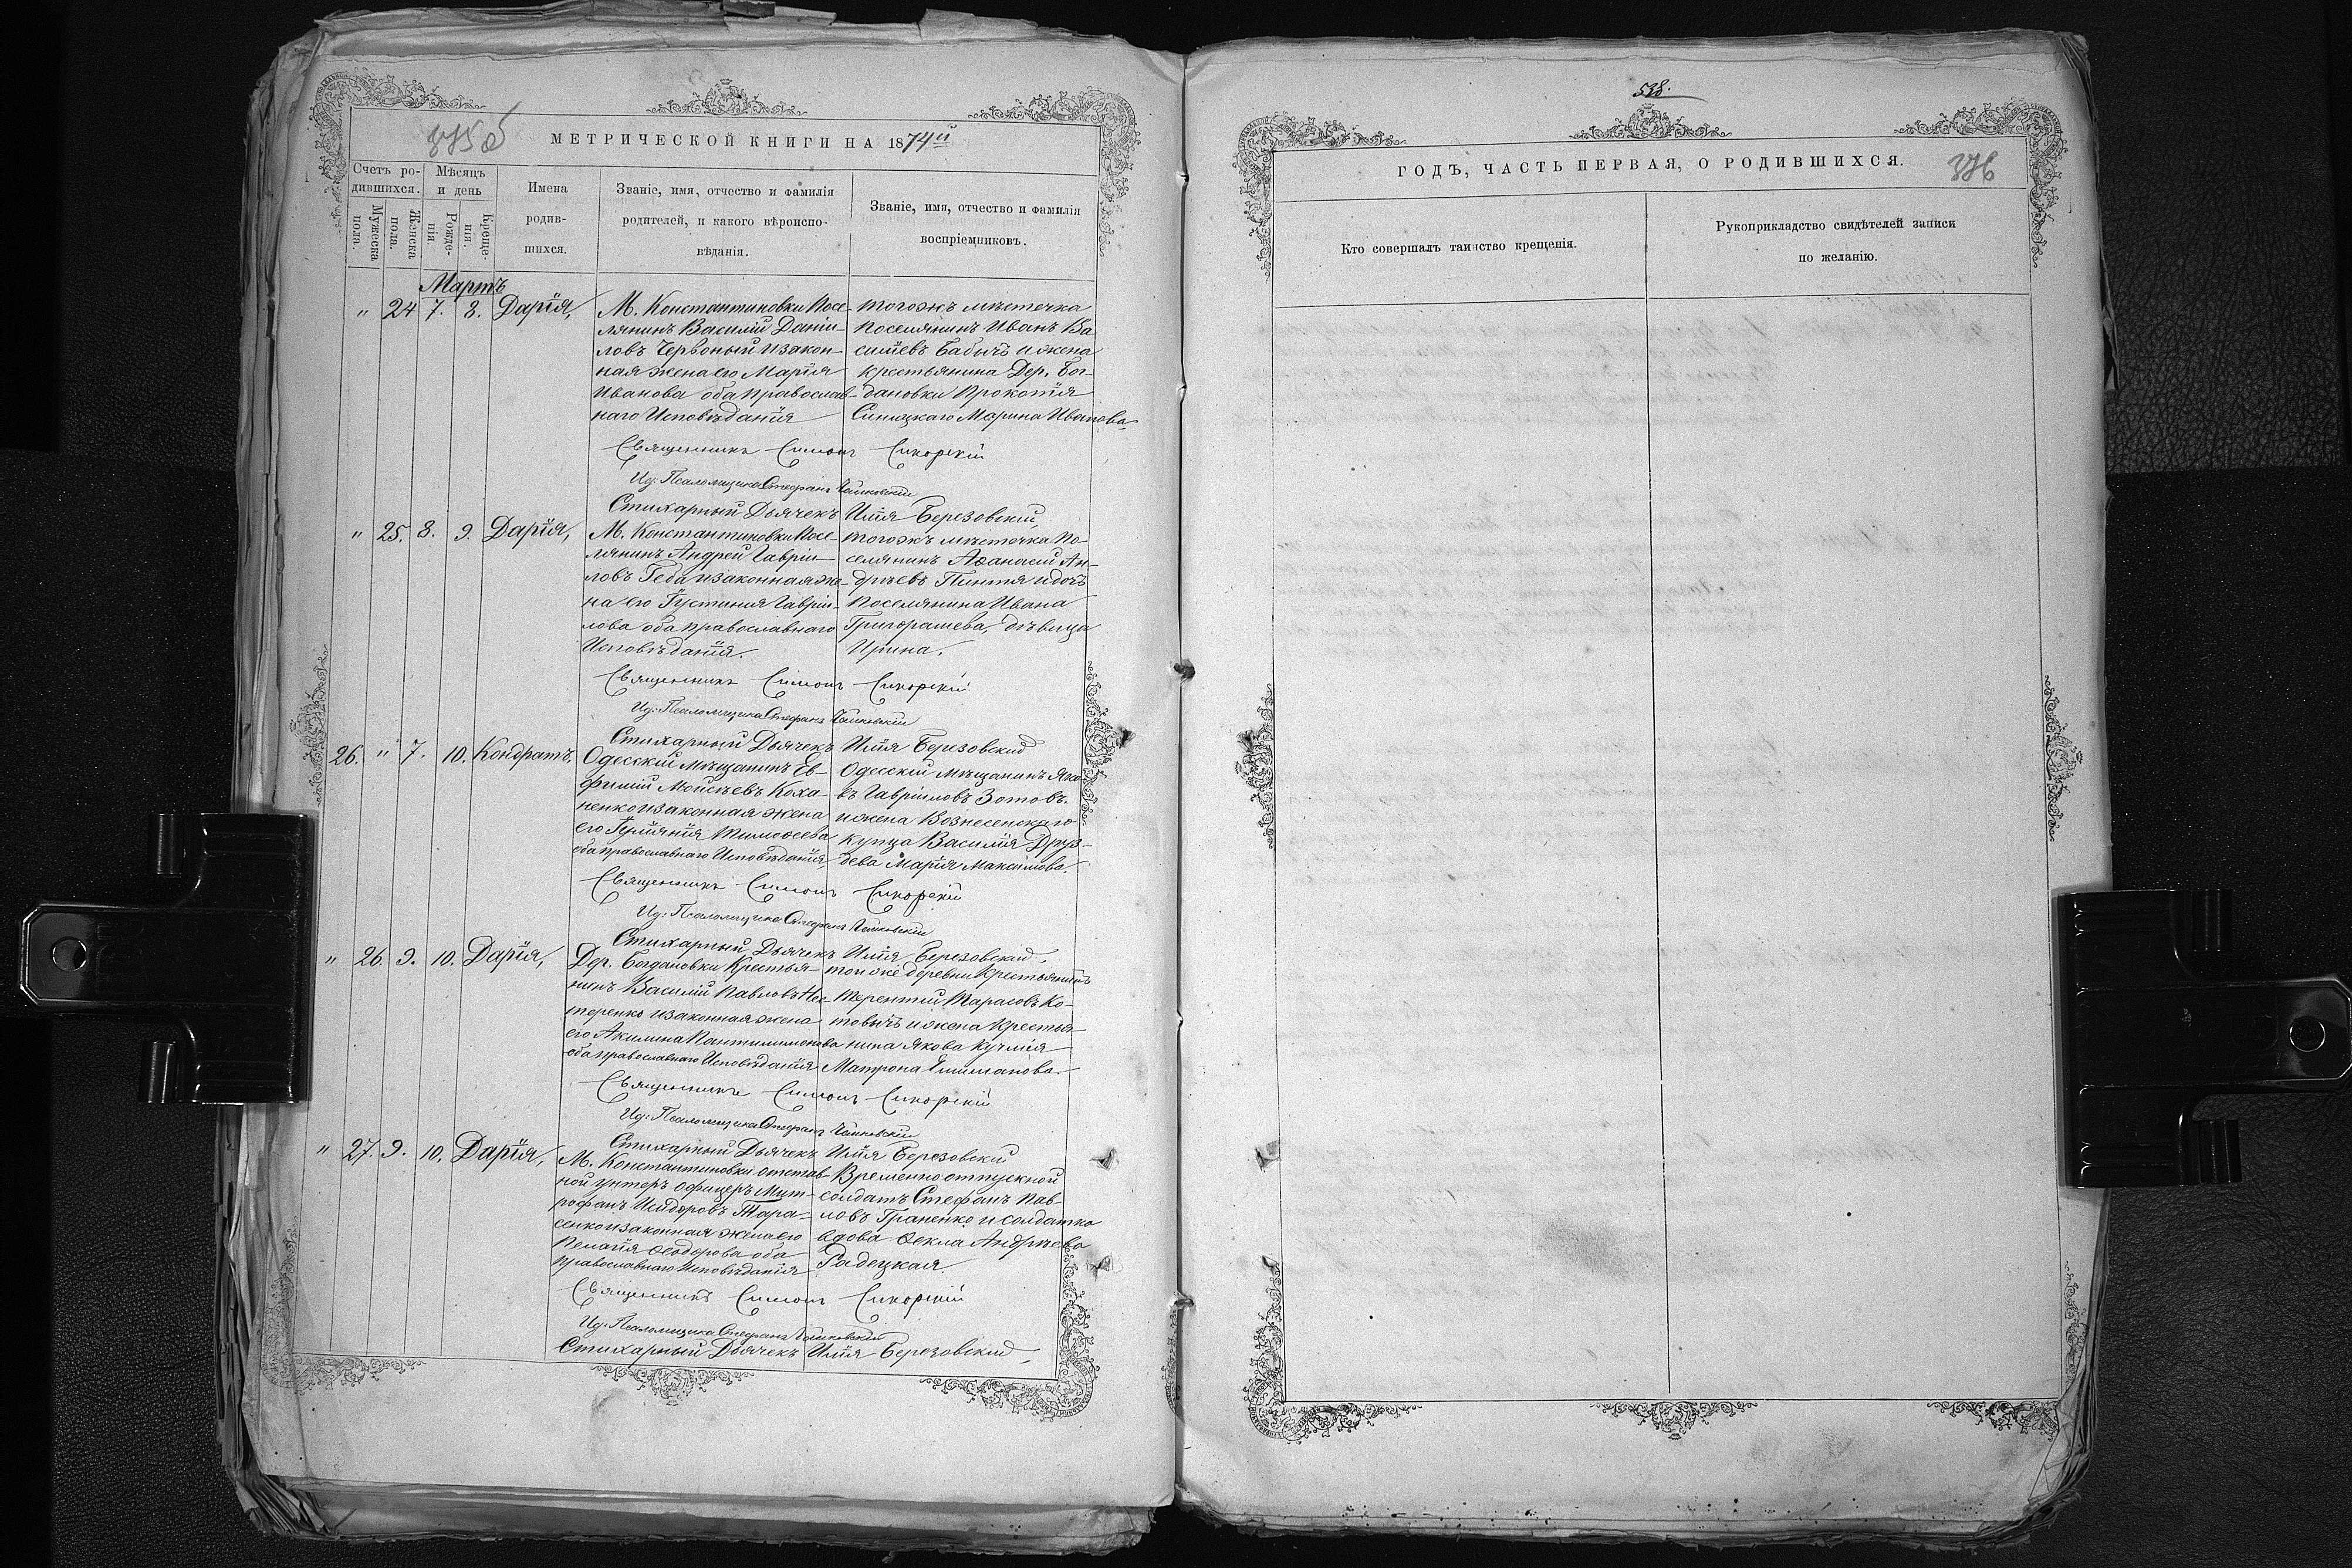 375 б
МЕТРИЧЕСКОЙ КНИГИ НА 1874й
Счетъ ро-
дившихся.
Мужеска
пола.
Женска
пола.
Мѣсяцъ
и день
Рожде-
нія
Креще-
нія.
Имена
родив-
шихся.
Званіе, имя, отчество и фамилія
родителей, и какого вѣроиспо-
вѣданія.
Званіе, имя, отчество и фамилія
воспріемниковъ.
Мартъ
" 24 7. 8. Дарія,
М. Константиновки Посе-
лянинъ Василій Даніи-
ловъ Червоный и закон-
ная жена его Марія
Иванова оба православ-
наго Исповѣданія
тогожъ мѣстечка
Поселянинъ Иванъ Ва
силіевъ Бабичъ и жена
крестьянина Дер. Бог-
дановки Прокопія
Синицкаго Марина Иванова.
Священникъ Симонъ Сикорскій
Ид: Псаломщика Стефанъ Чайковскій
Стихарный Дьячекъ Илія Березовскій,
" 25. 8. 9. Дарія,
М. Константиновки Посе-
лянинъ Андрей Гавріи-
ловъ Геба и законная же-
на его Іустинія Гавріи-
лова оба православнаго
Исповѣданія.
тогожъ мѣстечка По-
селянинъ Аѳанасій Ан-
дрѣевъ Пинтя и дочь
поселянина Ивана
Григорашева, дѣвица
Ирина.
Священникъ Симонъ Сикорскій
Ид: Псаломщика Стефанъ Чайковскій
Стихарный Дьячекъ Илія Березовскій
26. " 7. 10. Кондратъ,
Одесскій мѣщанинъ Ев-
фимій Моисѣевъ Коха-
ненко и законная жена
его Іуліянія Тимоѳеева
оба православнаго Исповѣданія,
Одесскій мѣщанинъ Яко-
въ Гавріиловъ Зотовъ.
и жена Вознесенскаго
купца Василія Друз-
дева Марія Максимова.
Священникъ Симонъ Сикорскій
Ид: Псаломщика Стефанъ Чайковскій
Стихарный Дьячекъ Илія Березовскій.
" 26. 9. 10. Дарія,
Дер. Богдановки Крестья-
нинъ Василій Павловъ Нес-
теренко и законная жена
его Акилина Пантилимонова
оба православнаго Исповѣданія
той же деревни Крестьянинъ
Терентій Тарасовъ Ко-
товичъ и жена Крестья-
нина Якова Кучмія
Матрона
Священникъ Симонъ Сикорскій
Ид: Псаломщика Стефанъ Чайковскій
Стихарный Дьячекъ Илія Березовскій
" 27. 9. 10. Дарія,
М. Константиновки отстав
ной унтеръ офицеръ Мит-
рофанъ Исидоровъ Тара-
сенко и законная жена его
Пелагія Ѳеодорова оба
православнаго Исповѣданія
Временно отпускной
солдатъ Стефанъ Пав-
ловъ Граненко и солдатка
вдова Ѳекла Андрѣева
Радецкая
Священникъ Симонъ Сикорскій
Ид: Псаломщика Стефанъ Чайковскій
Стихарный Дьячекъ Илія Березовскій,
538.
ГОДЪ, ЧАСТЬ ПЕРВАЯ, О РОДИВШИХСЯ.
376
Кто совершалъ таинство крещенія.
Рукоприкладство свидѣтелей записи
по желанію.